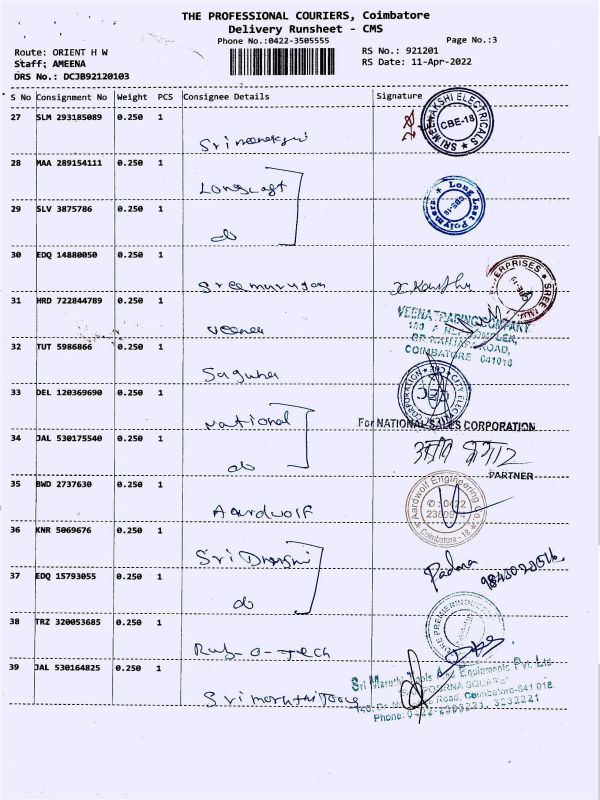 THE PROFESSIONAL COURIERS, Coimbatore
Delivery Runsheet - CMS
Phone No.:0422-3505555
Page No.:3
Route: ORIENT H W
RS No.: 921201
Staff; AMEENA
RS Date: 11-Apr-2022
DRS No.: DCJB92120103
S No Consignment No Weight PCS Consignee Details Signature
27 SLM 293185089 0.250 1
SRI MEENAKSHI ELECTRICALS
CBE-18
28 MAA 289154111 0.250 1
Long Last Polymers
CBE-18
29 SLV 3875786 0.250 1
do
30 EDQ 14880050 0.250 1
Sree murugan
31 HRD 722844789 0.250 1
Veena
VEENA TRADING COMPANY
COIMBATORE 641018
32 TUT 5986866 0.250 1
Saguna
CEC
33 DEL 120369690 0.250 1
National
For NATIONAL SALES CORPORATION
34 JAL 530175540 0.250 1
do
PARTNER
35 BWD 2737630 0.250 1
Aardwolf
Aardwolf Engineering Co.
Coimbatore - 18
36 KNR 5069676 0.250 1
Padma
37 EDQ 15793055 0.250 1
do
38 TRZ 320053685 0.250 1
Rub-O-Tech
39 JAL 530164825 0.250 1
Sri Maruthi Tools And Equipments Pvt. Ltd.
Road, Coimbatore-641 018
Sri maruthi Tools